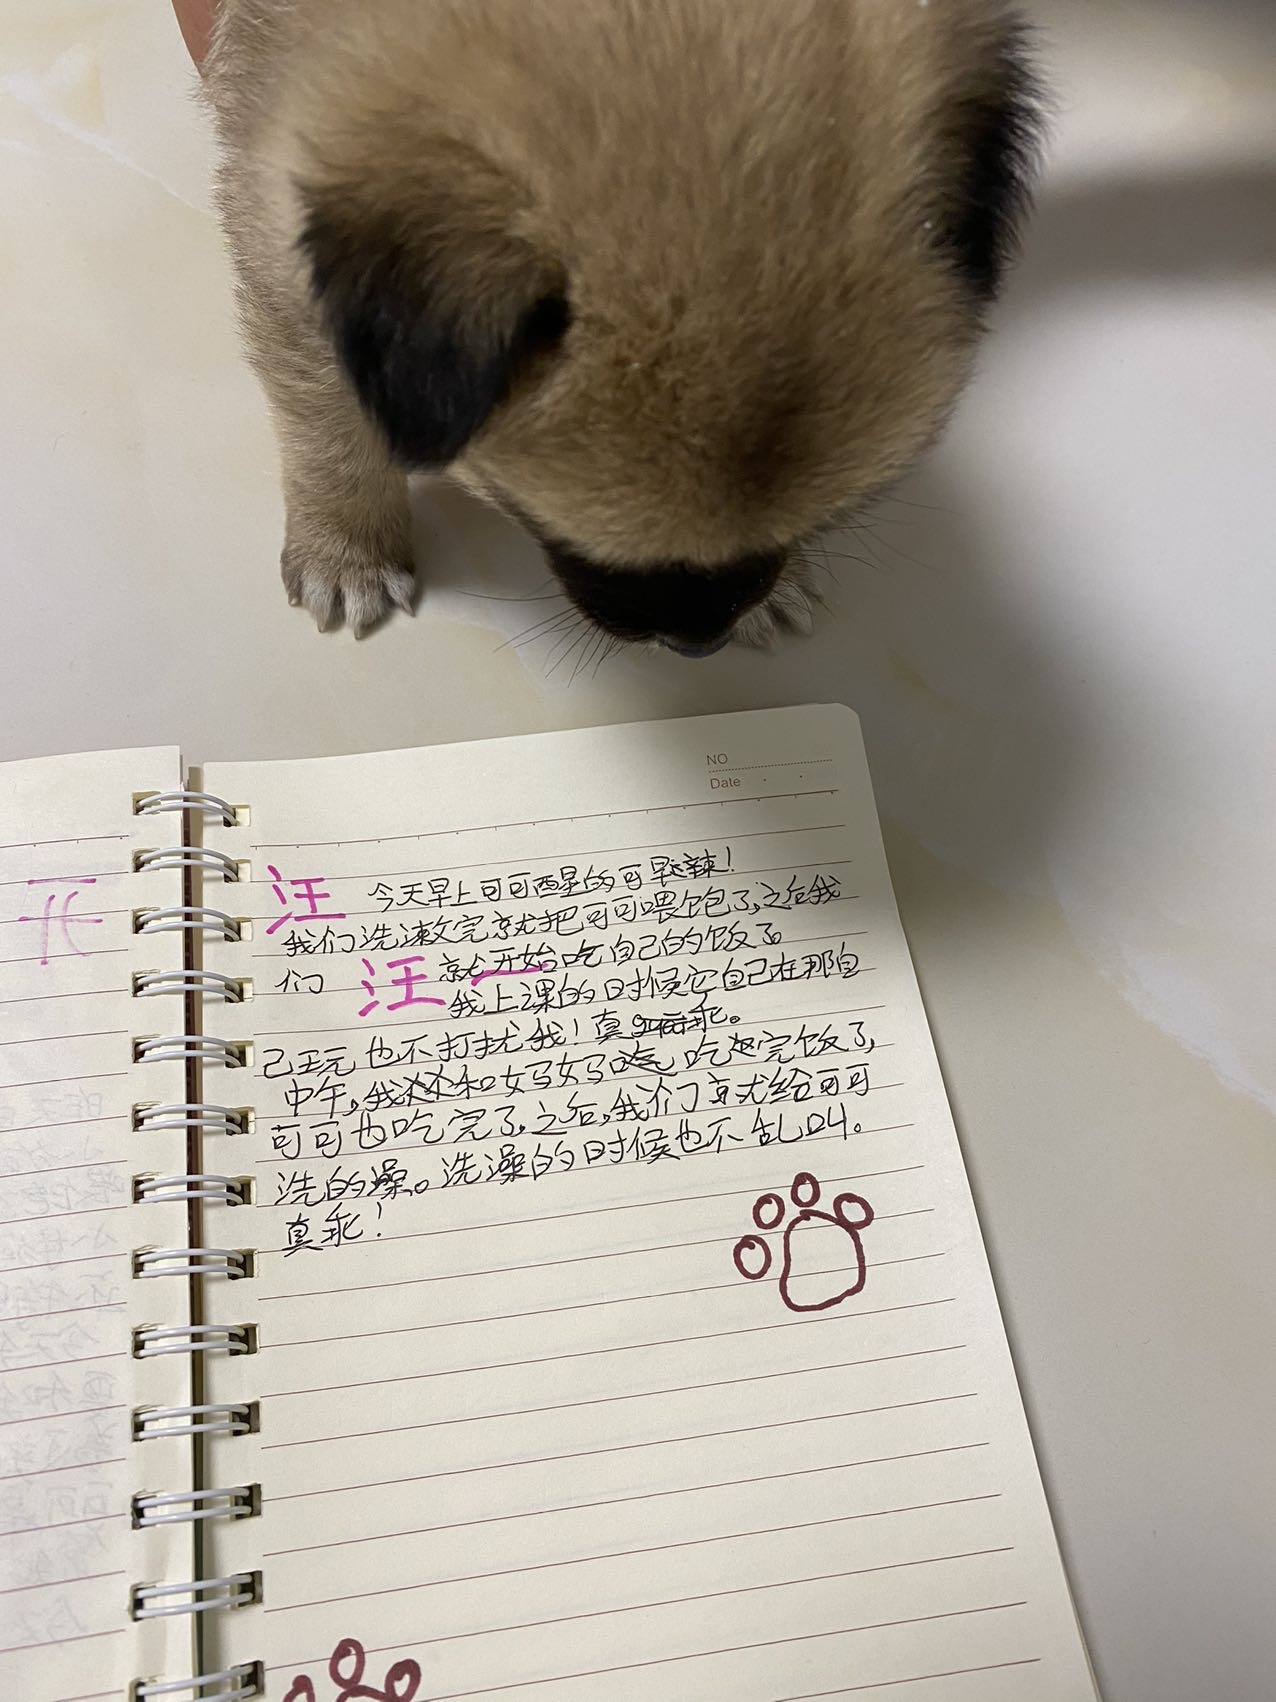 NO
Date
汪 今天早上可可醒的可早辣！
我们洗漱完就把可可喂饱了,之后我
们 汪 就开始吃自己的饭了。
我上课的时候它自己在那自
己玩也不打扰我！真乖。
中午,我和妈妈吃完饭了,
可可也吃完了,之后,我们就给可可
洗的澡。洗澡的时候也不乱叫。
真乖！